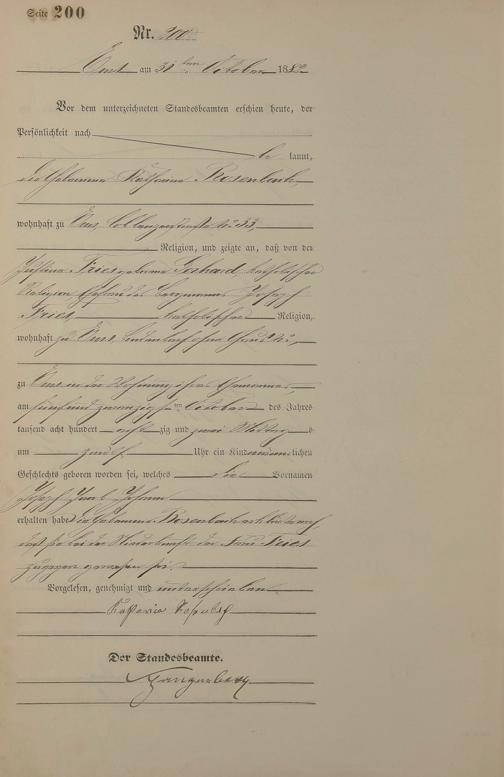 Seite 200
Nr. 200
Ems am 31ten October 1882
Vor dem unterzeichneten Standesbeamten erschien heute, der
Persönlichkeit nach
be kannt,
die Hebamme Katharina Rosenbach
wohnhaft zu Ems, Coblenzerstraße No 33,
Religion, und zeigte an, daß von der
Fries geborene Gerhard, katholischer
Religion, Ehefrau des Bergmannes Joseph
Fries, katholischer Religion,
wohnhaft zu Ems,
zu Ems in der Wohnung ihres Ehemannes,
am fünfundzwanzigsten October des Jahres
tausend acht hundert achtzig und zwei Mittags
um zwölf Uhr ein Kind männlichen
Geschlechts geboren worden sei, welches die Vornamen
Joseph Johann
erhalten habe. Die Hebamme Rosenbach erklärte noch,
daß sie bei der Niederkunft der Frau Fries
zugegen gewesen sei.
Vorgelesen, genehmigt und unterschrieben
Katharina Rosenbach
Der Standesbeamte.